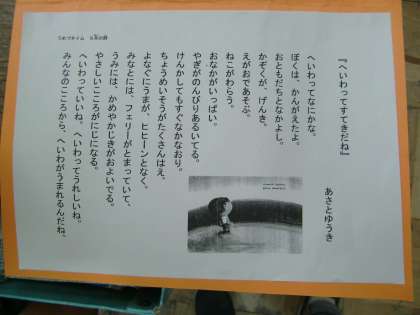 うたづタイム
『へいわってすてきだね』
あさとゆうき
へいわってなにかな。
ぼくは、かんがえたよ。
おともだちとなかよし。
かぞくが、げんき。
えがおであそぶ。
ねこがわらう。
おなかがいっぱい。
やぎがのんびりあるいてる。
けんかしてもすぐなかなおり。
ちょうめいそうがたくさんはえ、
よなぐにうまが、ヒヒーンとなく。
みなとには、フェリーがとまっていて、
うみには、かめやかじきがおよいでる。
やさしいこころがにじになる。
へいわっていいね。へいわってうれしいね。
みんなのこころから、へいわがうまれるんだね。